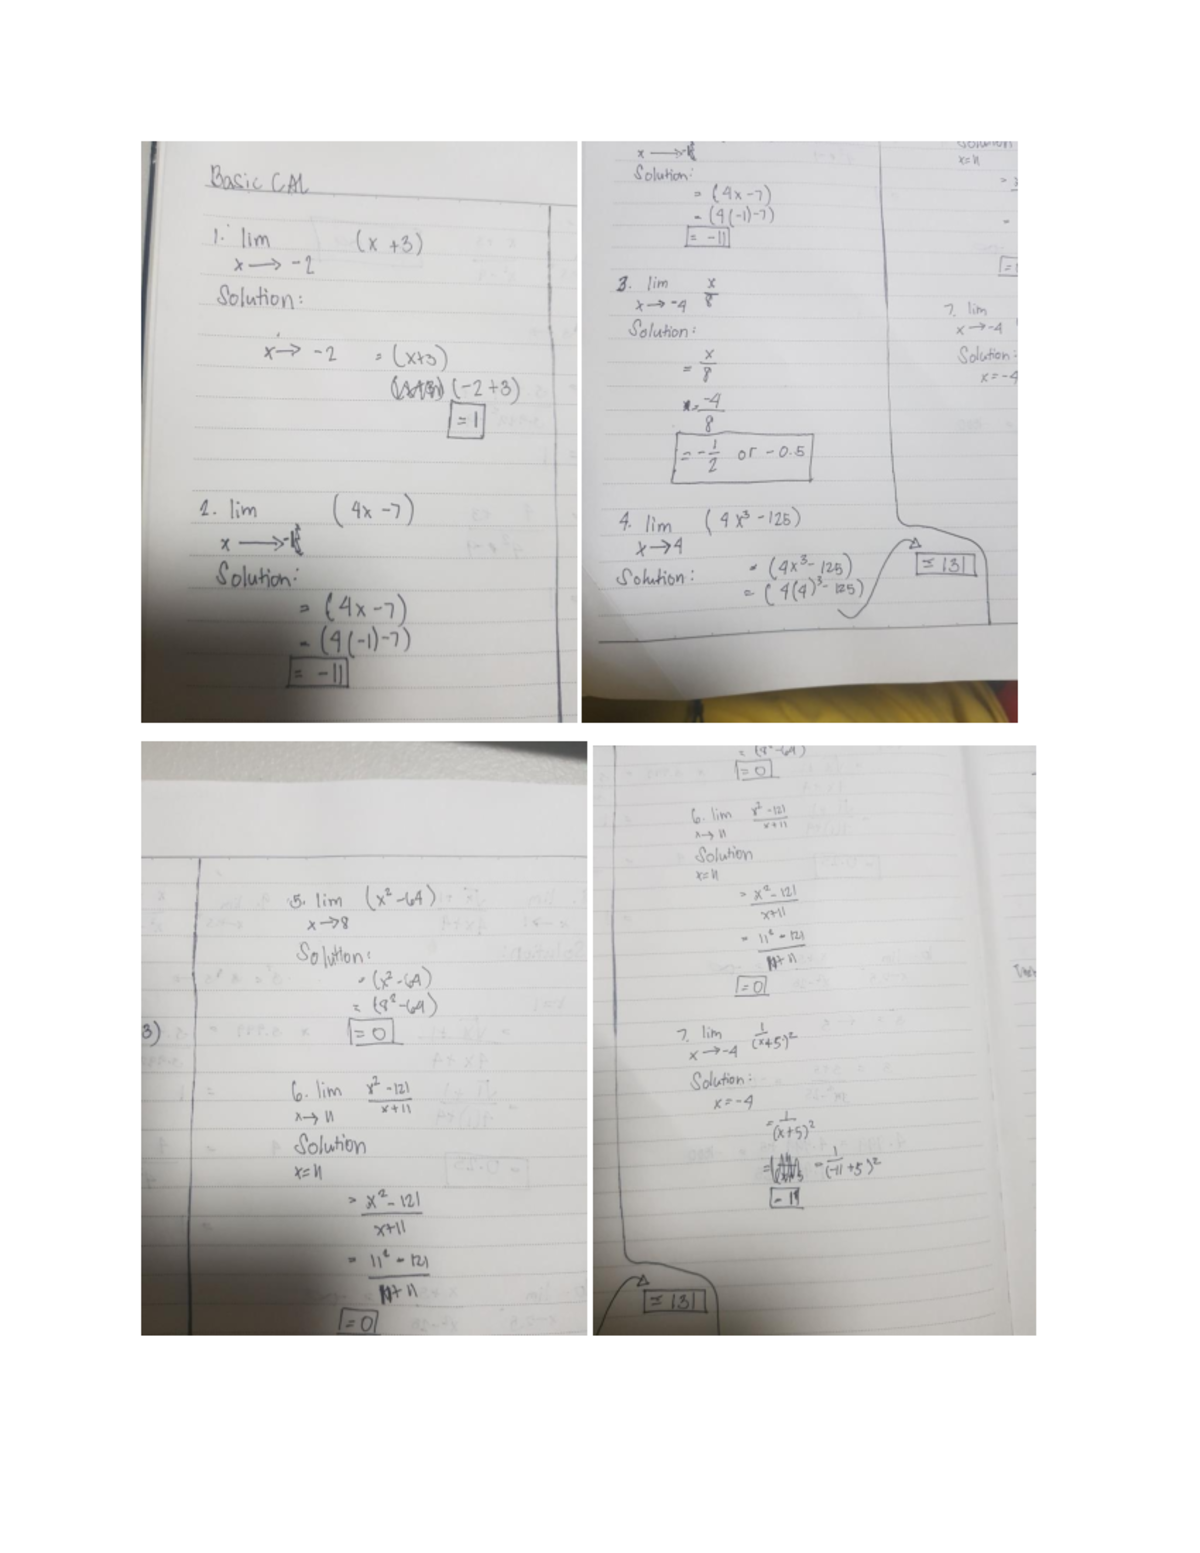 Basic CAL
1. lim (x +3)
x → -2
Solution:
x → -2 = (x+3)
(-2 +3)
= 1
2. lim (4x -7)
x →
Solution:
= (4x -7)
= (4(-1)-7)
= -11
x →
Solution:
= (4x -7)
= (4(-1)-7)
= -11
3. lim x/8
x → -4
Solution:
= x/8
= -4/8
= -1/2 or -0.5
4. lim (4x³ -125)
x → 4
Solution: = (4x³ - 125)
= (4(4)³ - 125)
= 131
Solution
x=11
7. lim
x → -4
Solution:
x = -4
5. lim (x² -64)
x → 8
Solution:
= (x² -64)
= (8² -64)
= 0
3)
6. lim x² -121/x+11
x → 11
Solution
x=11
= x² - 121/x+11
= 11² - 121/11+11
= 0
= (8² -64)
= 0
6. lim x² -121/x+11
x → 11
Solution
x=11
= x² - 121/x+11
= 11² - 121/11+11
= 0
7. lim 1/(x+5)²
x → -4
Solution:
x = -4
= 1/(x+5)²
= 1/(-11 +5)²
= 131